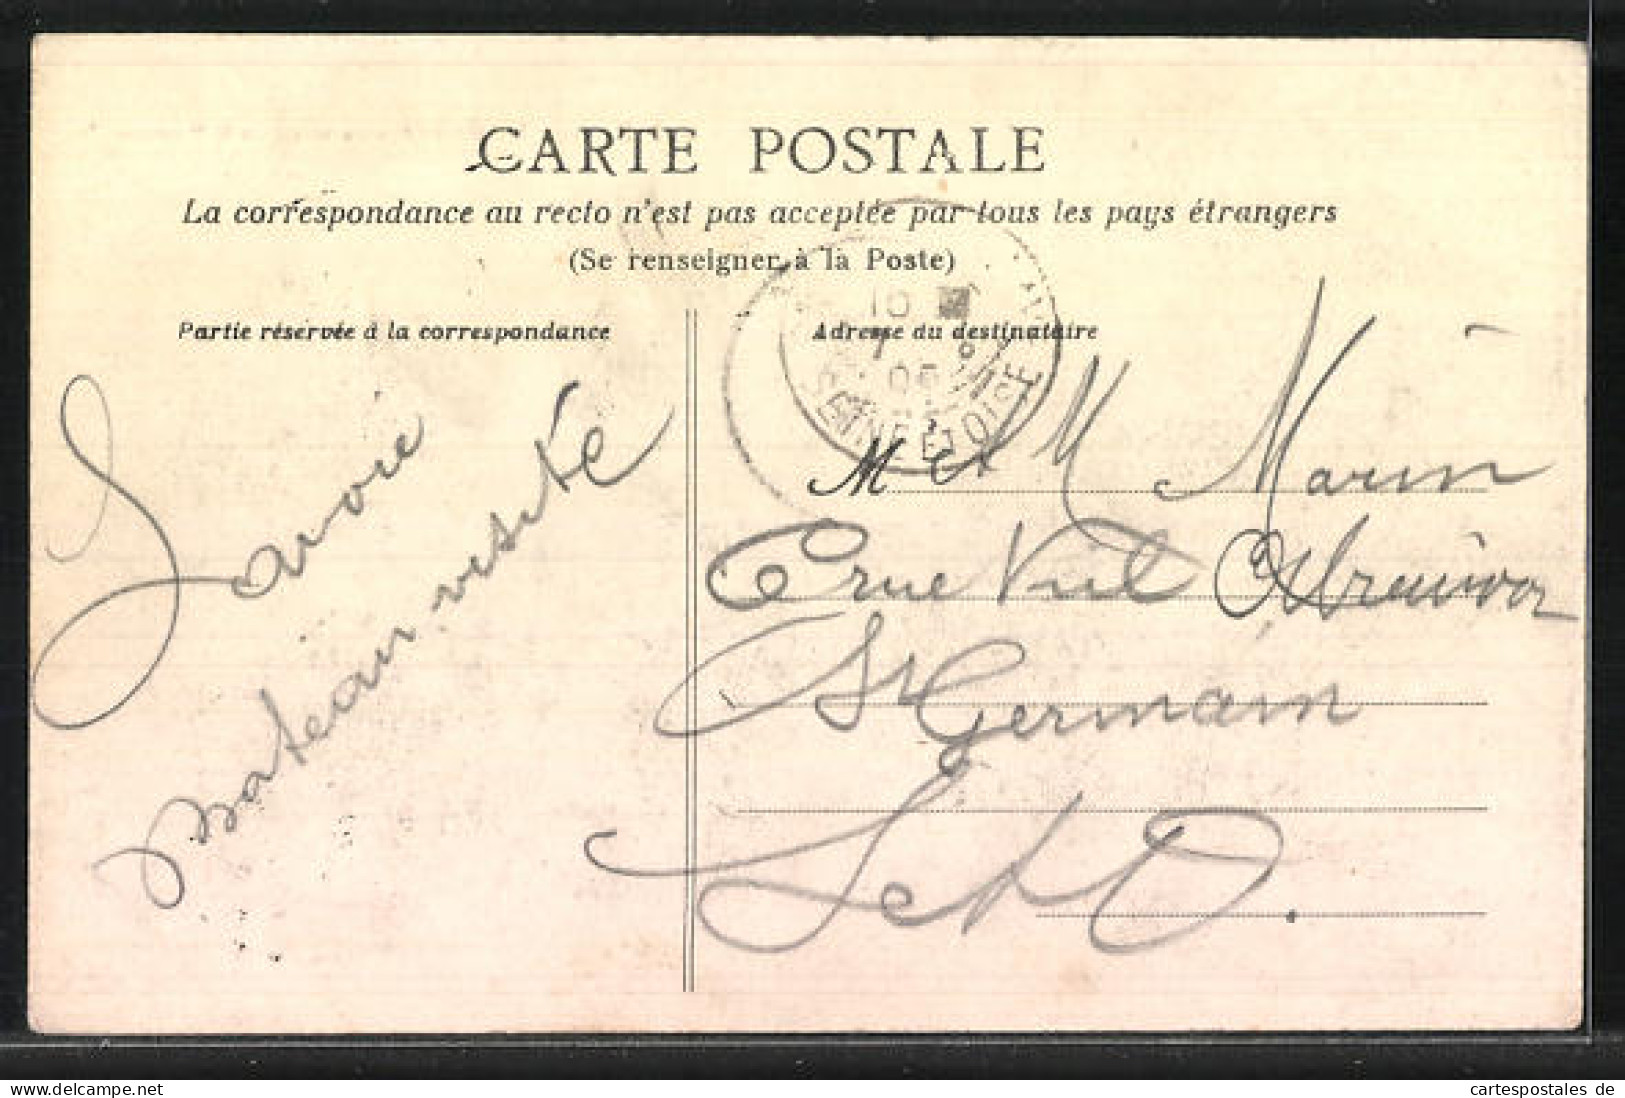 CARTE POSTALE
La correspondance au recto n'est pas acceptée par tous les pays étrangers
(Se renseigner à la Poste)
Partie réservée à la correspondance
Adresse du destinataire
10
7
05
SEINE-ET-OISE
Savoie
bateau visité
M et M Marin
rue Vieil Abreuvoir
St Germain
S et O.
Andreas
cartespostales de